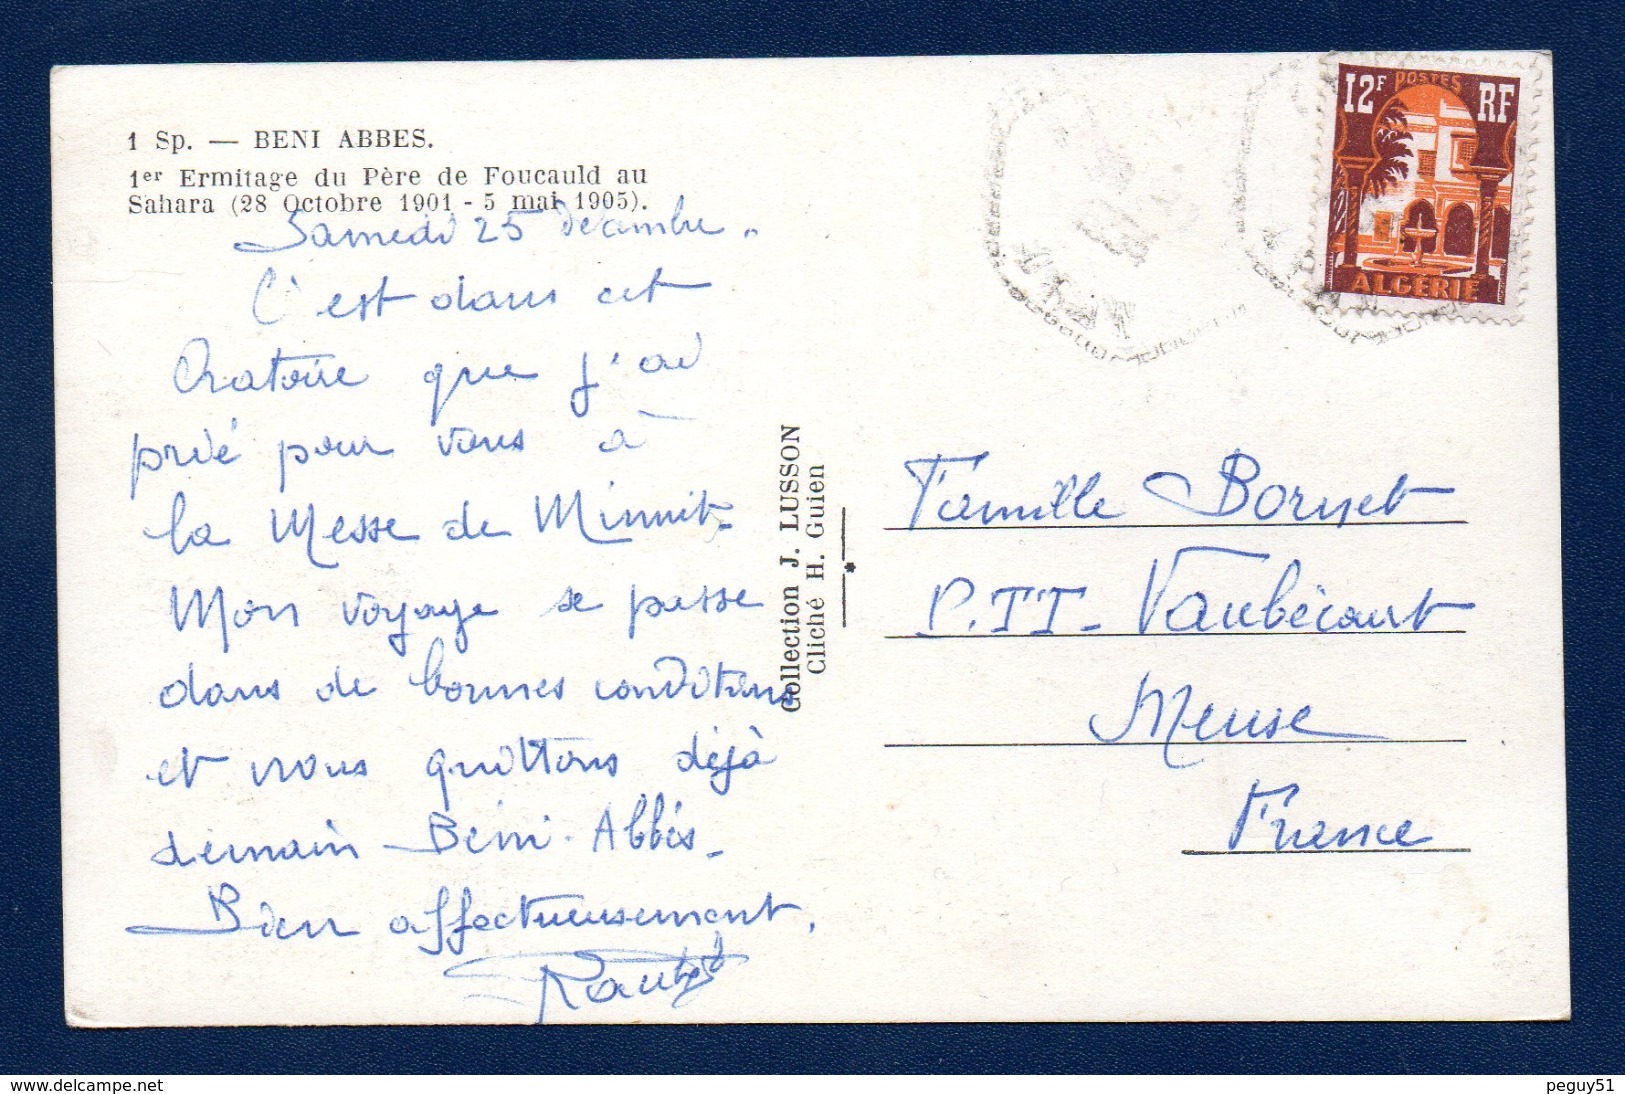 1 Sp. — BENI ABBES.
1er Ermitage du Père de Foucauld au
Sahara (28 Octobre 1901 - 5 mai 1905).
Samedi 25 Décembre..
C'est dans cet
Oratoire que j'ai
prié pour vous à
la Messe de Minuit.
Mon voyage se passe
dans de bonnes conditions
et nous quittons déjà
demain Béni-Abbès.
Bien affectueusement,
Collection J. LUSSON
Cliché H. Guien
12F POSTES RF
ALGÉRIE
Famille Bornet
P.TT- Vaubécourt
Meuse
France
delcampe.net
peguy51